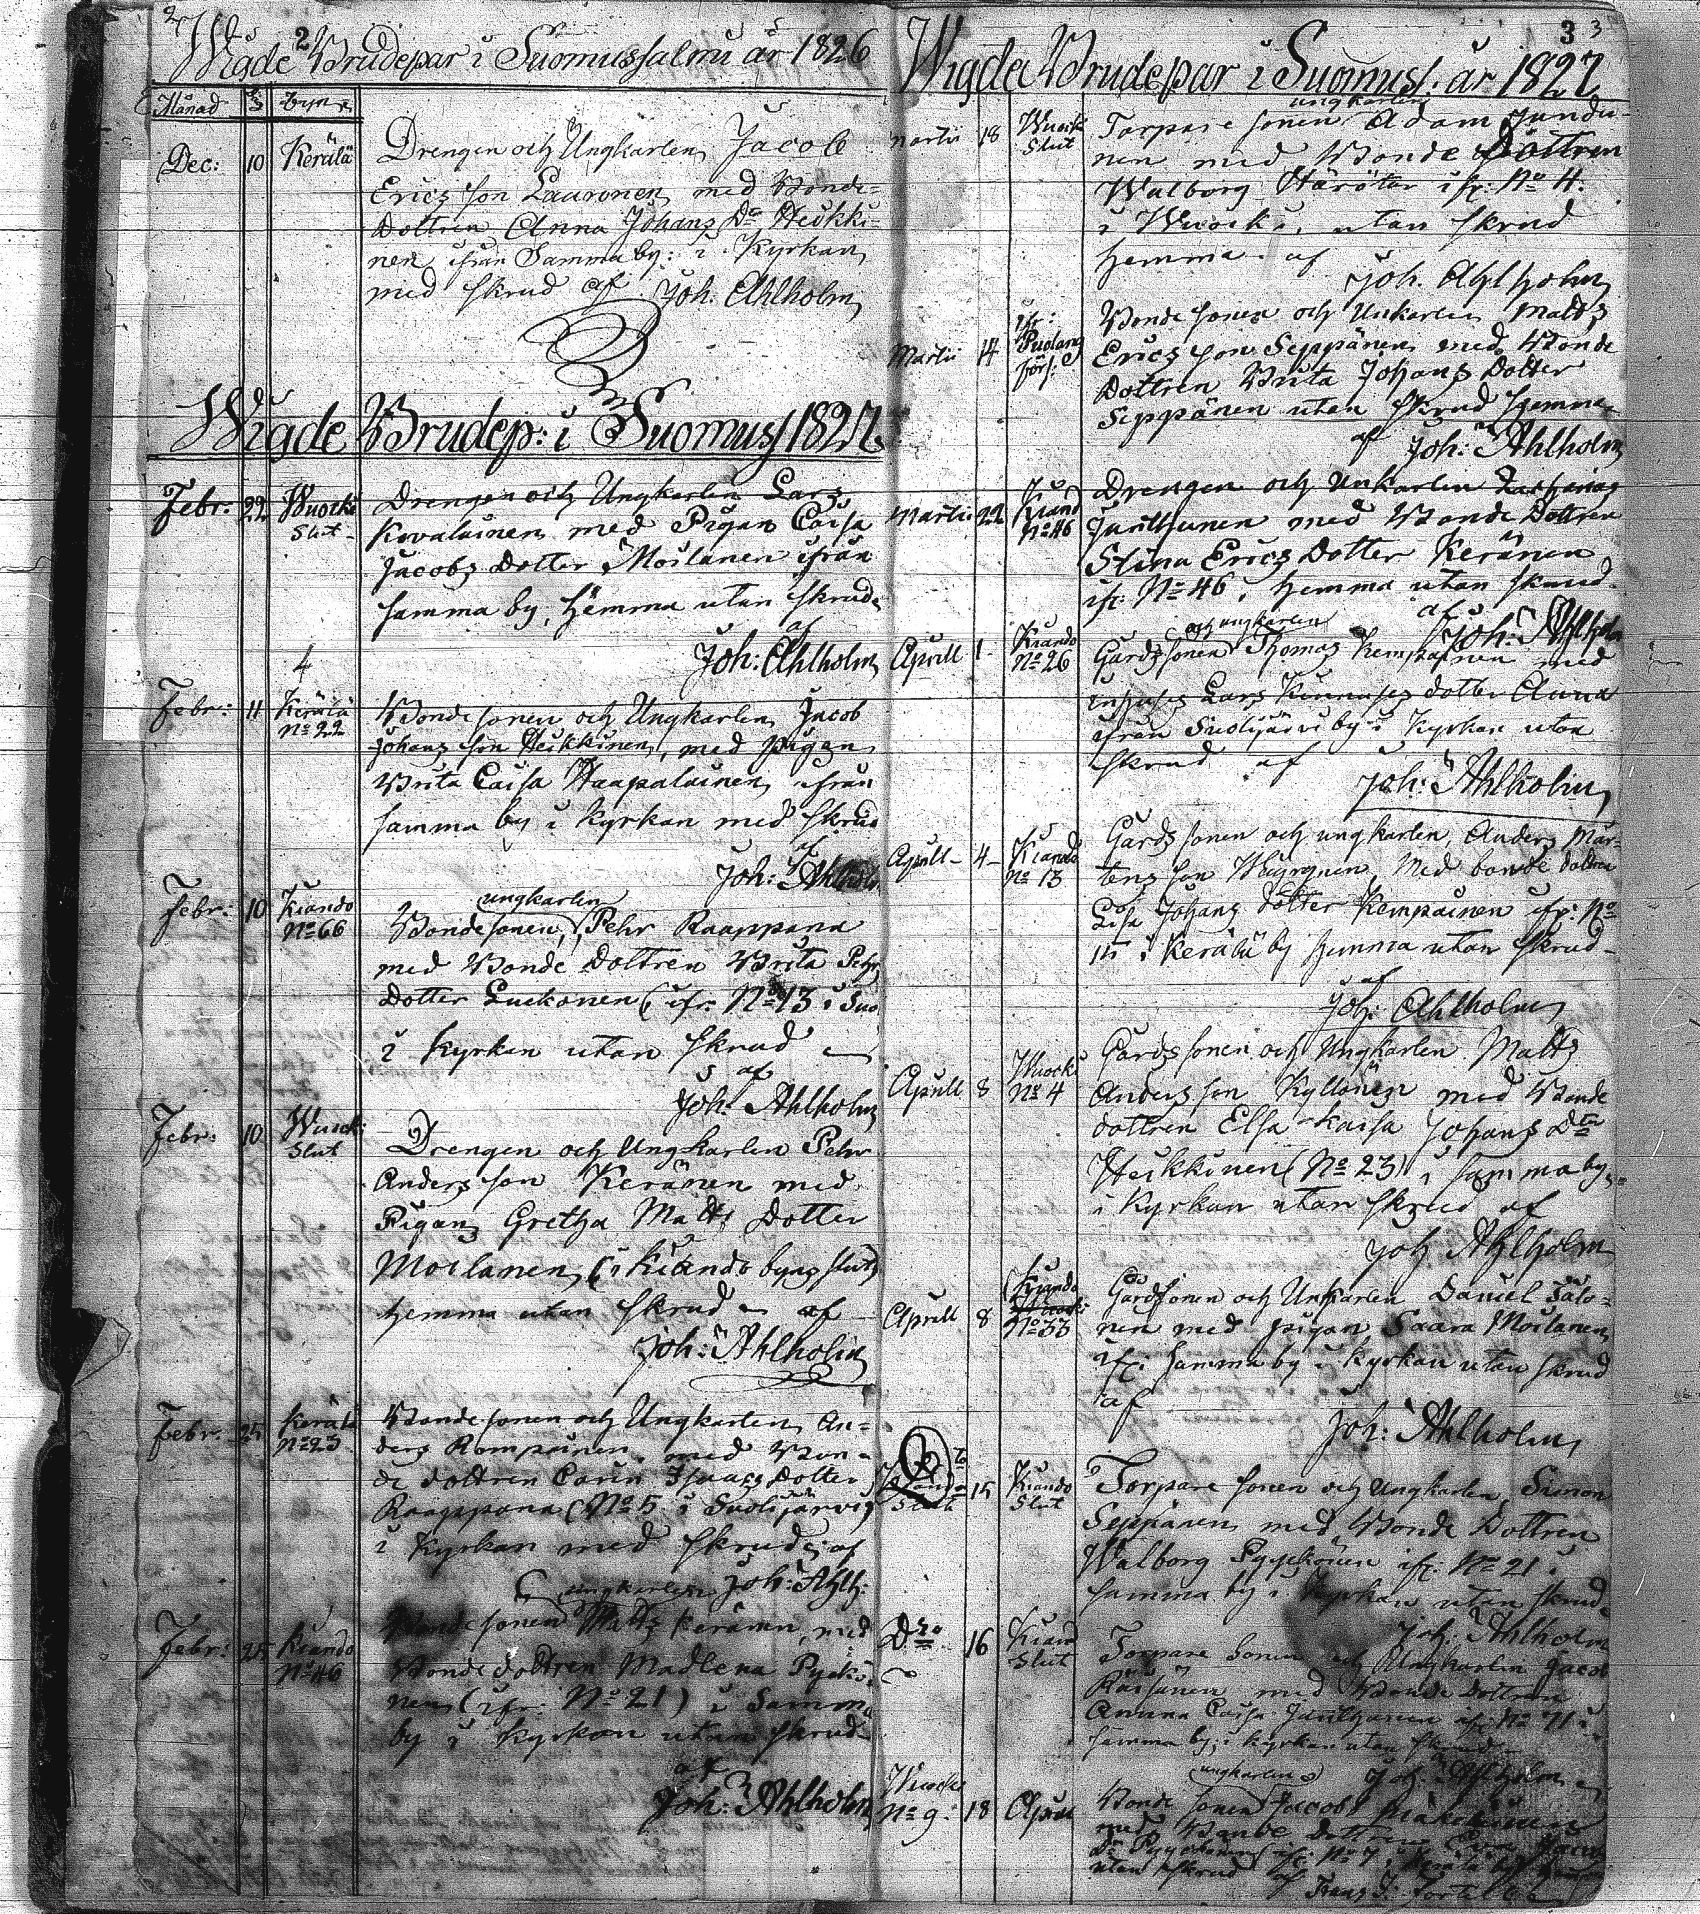 2
Wigde Brudepar i Suomussalmi år 1826
Månad
byn
Dec: 10 Kerälä
Drengen och Ungkarlen Jacob
Ericsson Lauronen med Bonde-
Dottren Anna Johans Dr Heikki-
nen ifrån Samma by: i Kyrkan
med skrud af Joh: Ahlholm
Wigde Brudep: i Suomuss 1827.
Febr: 22 Wuocki Slut
Drengen och Ungkarlen Lars
Kovalainen med Pigan Caisa
Jacobs Dotter Moilanen ifrån
samma by, hemma utan skrud
af
Joh: Ahlholm
4
Febr: 11 Kerälä No 22
Bondesonen och Ungkarlen Jacob
Johansson Heikkinen, med pigan
Brita Caisa Haapalainen ifrån
samma by i Kyrkan med skrud
af
Joh: Ahlholm
Febr: 10 Kiando No 66
ungkarlen
Bondesonen, Pehr Raappana
med Bonde Dottren Brita Pehrs
Dotter Luckonen (ifr: No 13 i Suo
i Kyrkan utan skrud
af
Joh: Ahlholm
Febr: 10 Wuocki Slut
Drengen och Ungkarlen Pehr
Andersson Keränen med
Pigan Gretha Matts Dotter
Moilanen (i Kiando byns slut)
hemma utan skrud af
Joh: Ahlholm
Febr: 25 Kerälä No 23
Bondesonen och Ungkarlen An-
ders Kempainen med Bon-
de dottren Carin Isaacs Dotter
Raappana (No 5 i Suolijärvi)
i Kyrkan med skrud af
Joh: Ahlh:
ungkarlen
Febr: 25 Kiando No 46
Bondesonen Matts Keränen, med
Bonde dottren Madlena Pyckö-
nen (ifr: No 21) i Samma
by i Kyrkan utan skrud
af
Joh: Ahlholm
3 3
Wigde Brudepar i Suomuss: år 1827
ungkarlen
Martii 18 Wuocki Slut
Torpare sonen Adam Jundu-
nen med Bonde Dottren
Walborg Härötar ifr: No 4.
i Wuocki, utan skrud
hemma af
Joh. Ahlholm
Martii 14 ifr: Pudas förs:
Bonde sonen och Unkarlen Matts
Ericsson Seppänen med Bonde
Dottren Brita Johans Dotter
Seppänen utan skrud hemma
af Joh: Ahlholm
Martii 22 Kiand No 46
Drengen och Unkarlen Zacharias
Juntunen med Bonde Dottren
Stina Erics Dotter Keränen
ifr: No 46, hemma utan skrud
af
Joh: Ahlho
och ungkarlen
Aprill 1 Kiando No 26
Gårdssonen Thomas Kempainen med
Lars Kinnuses dotter Anna
ifrån Suolijärvi by i Kyrkan utan
skrud af
Joh: Ahlholm
Aprill 4 Kiando No 13
Gårdssonen och ungkarlen, Anders Mår-
tensson Hyyrynen, Med bonde dottren
Lisa Johans dotter Kempainen ifr: No
15 i Kerälä by hemma utan skrud
af
Joh: Ahlholm
Aprill 8 Wuocki No 4
Gårdssonen och Ungkarlen Matts
Andersson Kyllönen med Bonde
dottren Elsa Kaisa Johans Dtr
Heikkinen (No 23) i samma by
i Kyrkan utan skrud af
Joh Ahlholm
Aprill 8 Kiando No 33
Gårdsonen och Unkarlen Daniel Talo-
nen med pigan Saara Moilanen
ifr: samma by i Kyrkan utan skrud
af
Joh: Ahlholm
15 Kiando Slut
Torpare sonen och Ungkarlen Simon
Seppänen med Bonde Dottren
Walborg Pyykönen ifr: No 21 i
samma by i Kyrkan utan skrud
Joh: Ahlholm
Dto 16 Kiand Slut
Torpare Sonen och Ungkarlen Jacob
Räisänen med Bonde Dottren
Anna Caisa Juntunen ifr: No 71 i
samma by, i Kyrkan utan skrud
Joh: Ahlholm
ungkarlen
Wuocki No 9. 18 Aprill
Bonde sonen Jacob
med Bonde Dottren
Dr Pyykönen ifr: No 7 i Kerälä by
utan skrud af